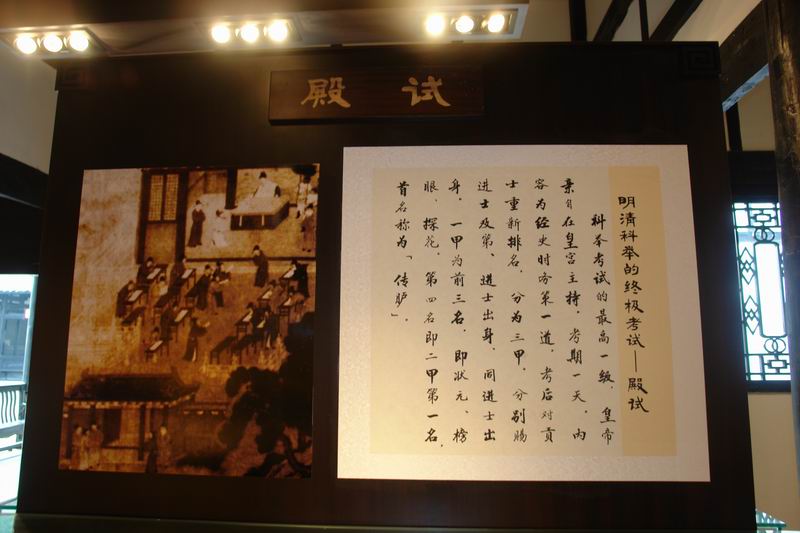 殿试
明清科举的终极考试——殿试
科举考试的最高一级，皇帝
亲自在皇宫主持，考期一天，内
容为经史时务策一道，考后对贡
士重新排名，分为三甲，分别赐
进士及第、进士出身、同进士出
身，一甲为前三名，即状元、榜
眼、探花，第四名即二甲第一名，
首名称为「传胪」。